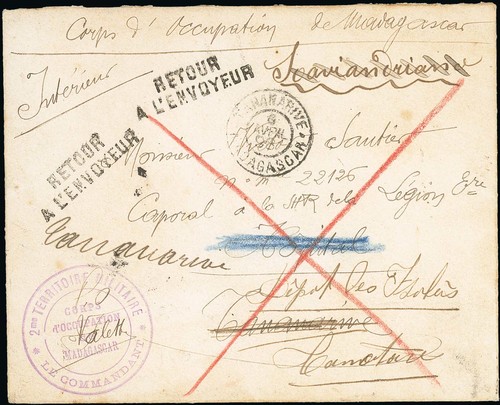 Corps d'Occupation de Madagascar
Intérieur
RETOUR
A L'ENVOYEUR
RETOUR
A L'ENVOYEUR
TANANARIVE
6
AVRIL
MADAGASCAR
Monsieur Sautier
n° m 22126
Caporal à la de la Légion Ere
Hôpital
Tananarive
Dépôt des Isolés
Tananarive
2me TERRITOIRE MILITAIRE
CORPS
D'OCCUPATION
MADAGASCAR
LE COMMANDANT